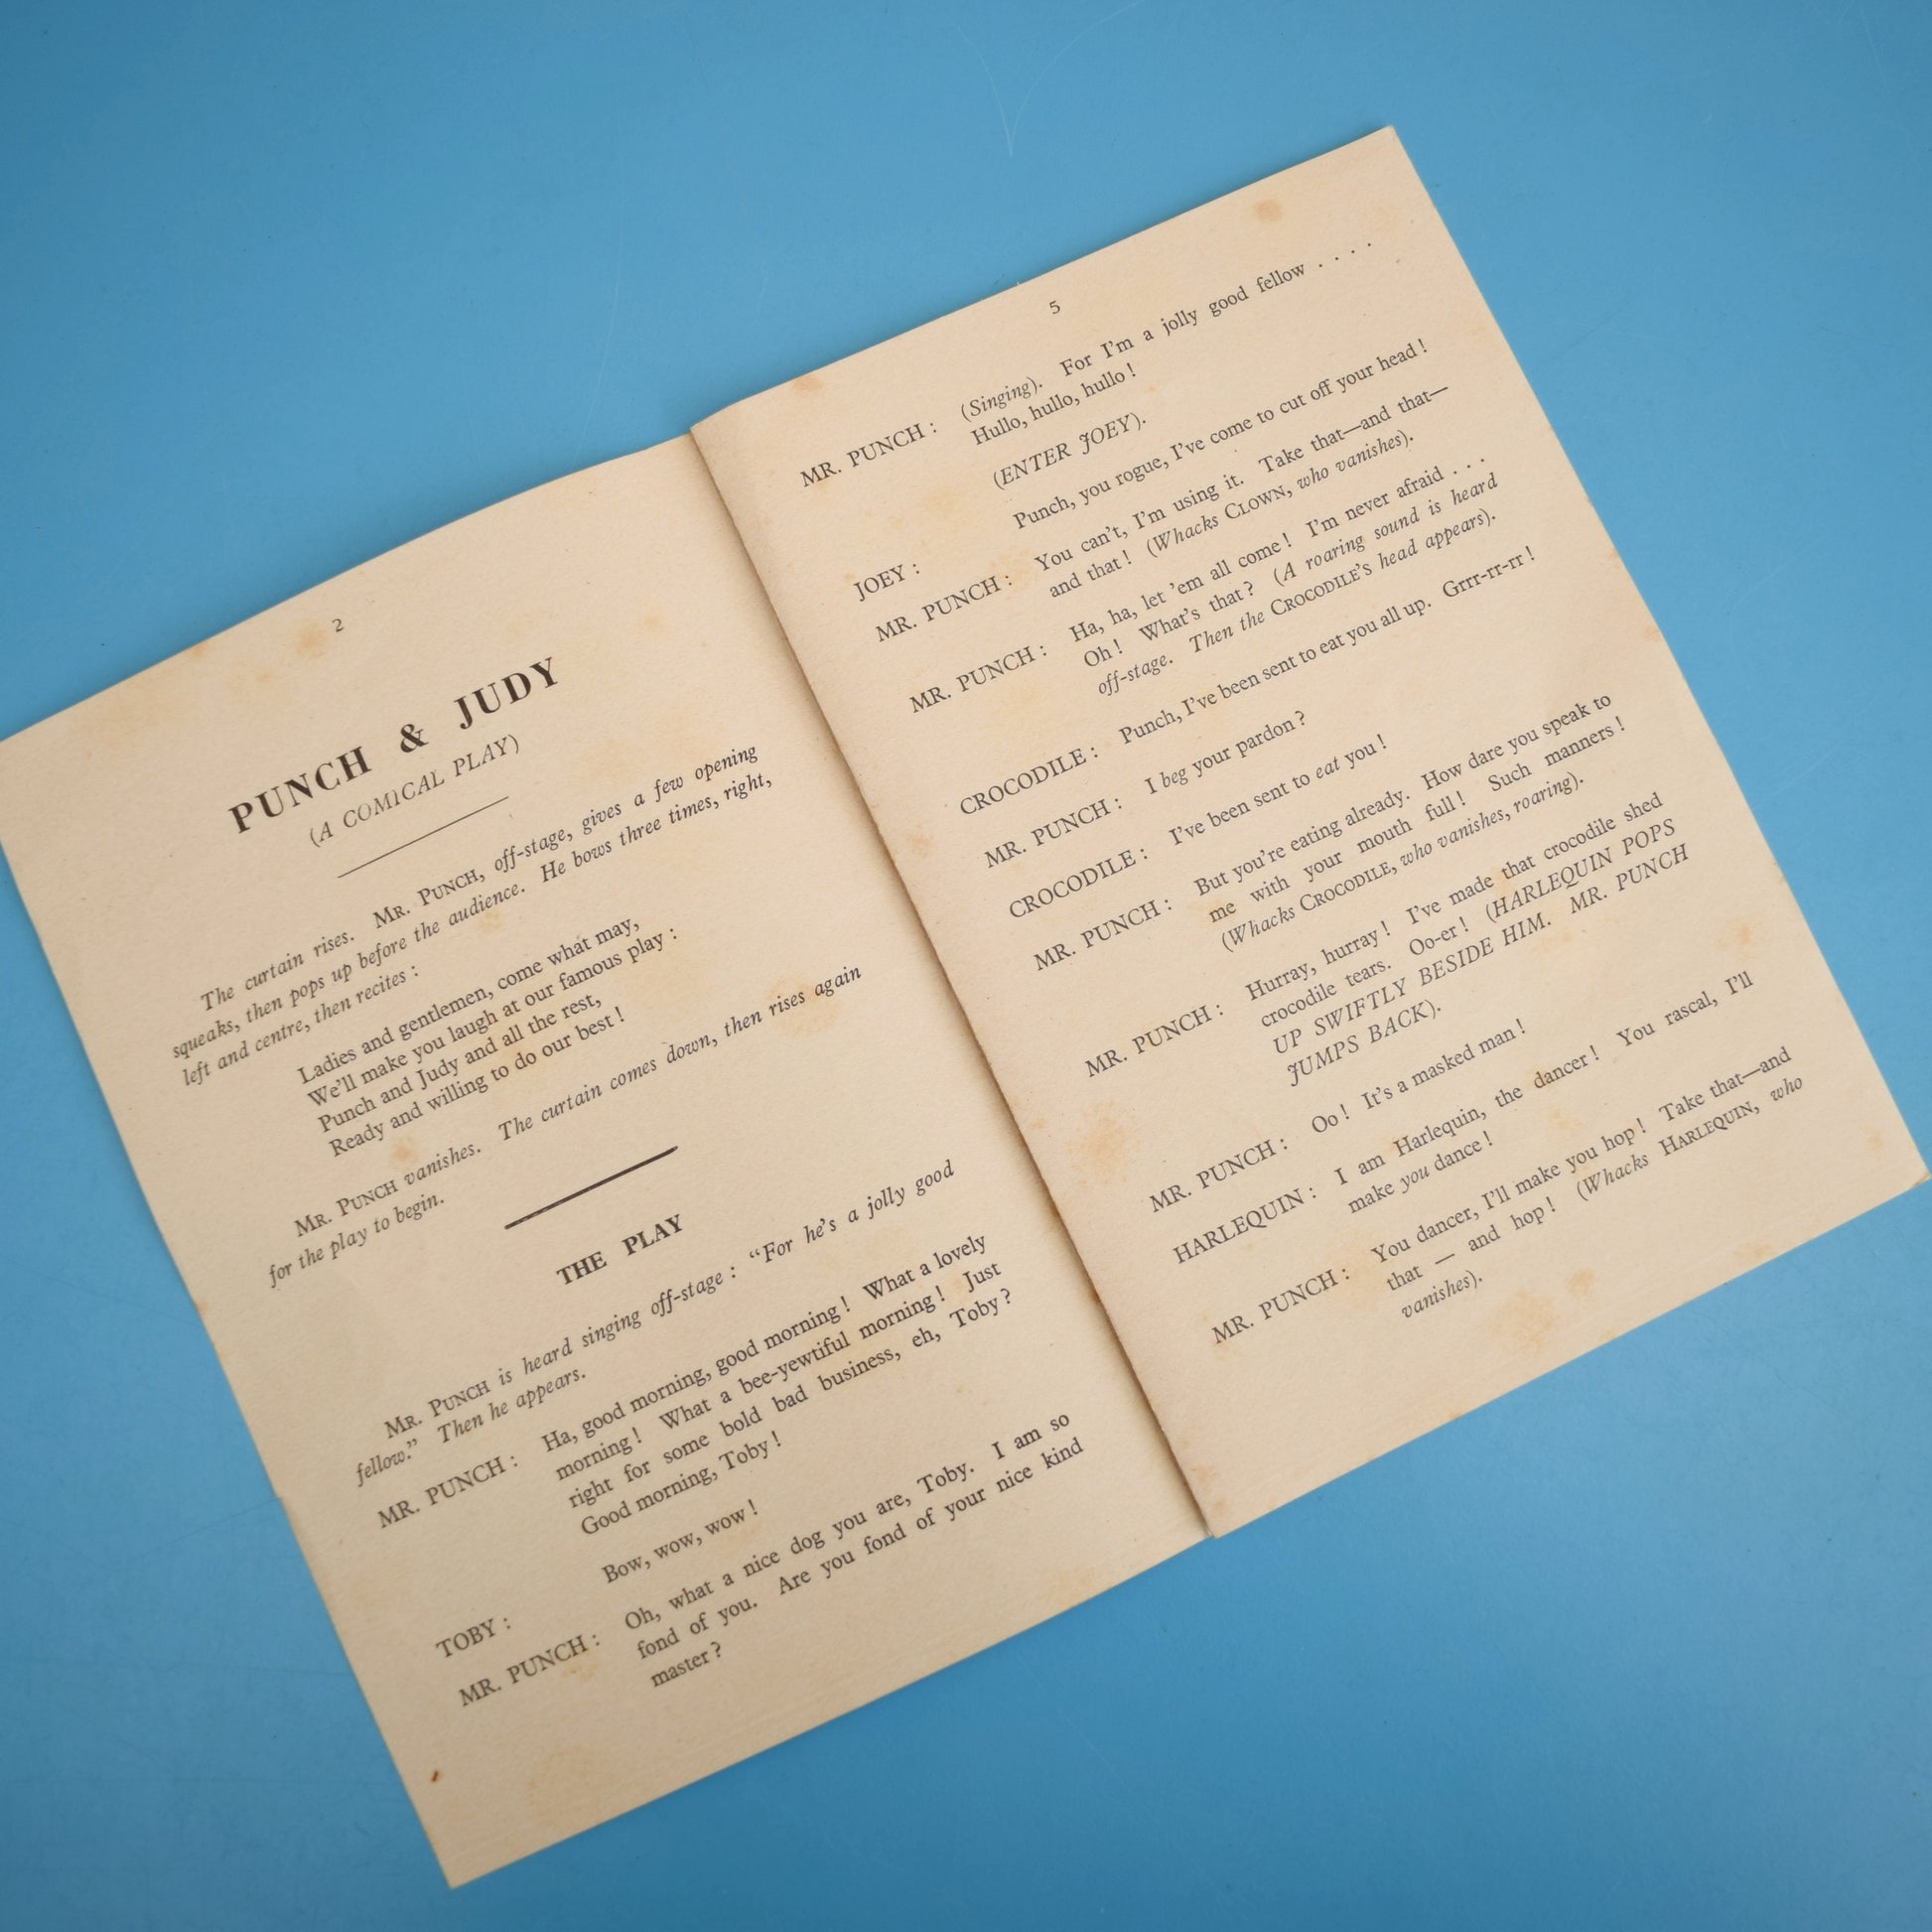 2
PUNCH & JUDY
(A COMICAL PLAY)
The curtain rises. MR. PUNCH, off-stage, gives a few opening
squeaks, then pops up before the audience. He bows three times, right,
left and centre, then recites :
Ladies and gentlemen, come what may,
We'll make you laugh at our famous play :
Punch and Judy and all the rest,
Ready and willing to do our best !
MR. PUNCH vanishes. The curtain comes down, then rises again
for the play to begin.
THE PLAY
MR. PUNCH is heard singing off-stage : “For he's a jolly good
fellow.” Then he appears.
MR. PUNCH : Ha, good morning, good morning ! What a lovely
morning ! What a bee-yewtiful morning ! Just
right for some bold bad business, eh, Toby ?
Good morning, Toby !
TOBY : Bow, wow, wow !
MR. PUNCH : Oh, what a nice dog you are, Toby. I am so
fond of you. Are you fond of your nice kind
master ?
5
MR. PUNCH : (Singing). For I'm a jolly good fellow . . . .
Hullo, hullo, hullo !
(ENTER JOEY).
JOEY : Punch, you rogue, I've come to cut off your head !
MR. PUNCH : You can't, I'm using it. Take that—and that—
and that ! (Whacks CLOWN, who vanishes).
MR. PUNCH : Ha, ha, let 'em all come ! I'm never afraid . . .
Oh ! What's that ? (A roaring sound is heard
off-stage. Then the CROCODILE'S head appears).
CROCODILE : Punch, I've been sent to eat you all up. Grrr-rr-rr !
MR. PUNCH : I beg your pardon ?
CROCODILE : I've been sent to eat you !
MR. PUNCH : But you're eating already. How dare you speak to
me with your mouth full ! Such manners !
(Whacks CROCODILE, who vanishes, roaring).
MR. PUNCH : Hurray, hurray ! I've made that crocodile shed
crocodile tears. Oo-er ! (HARLEQUIN POPS
UP SWIFTLY BESIDE HIM. MR. PUNCH
JUMPS BACK).
MR. PUNCH : Oo ! It's a masked man !
HARLEQUIN : I am Harlequin, the dancer ! You rascal, I'll
make you dance !
MR. PUNCH : You dancer, I'll make you hop ! Take that—and
that — and hop ! (Whacks HARLEQUIN, who
vanishes).